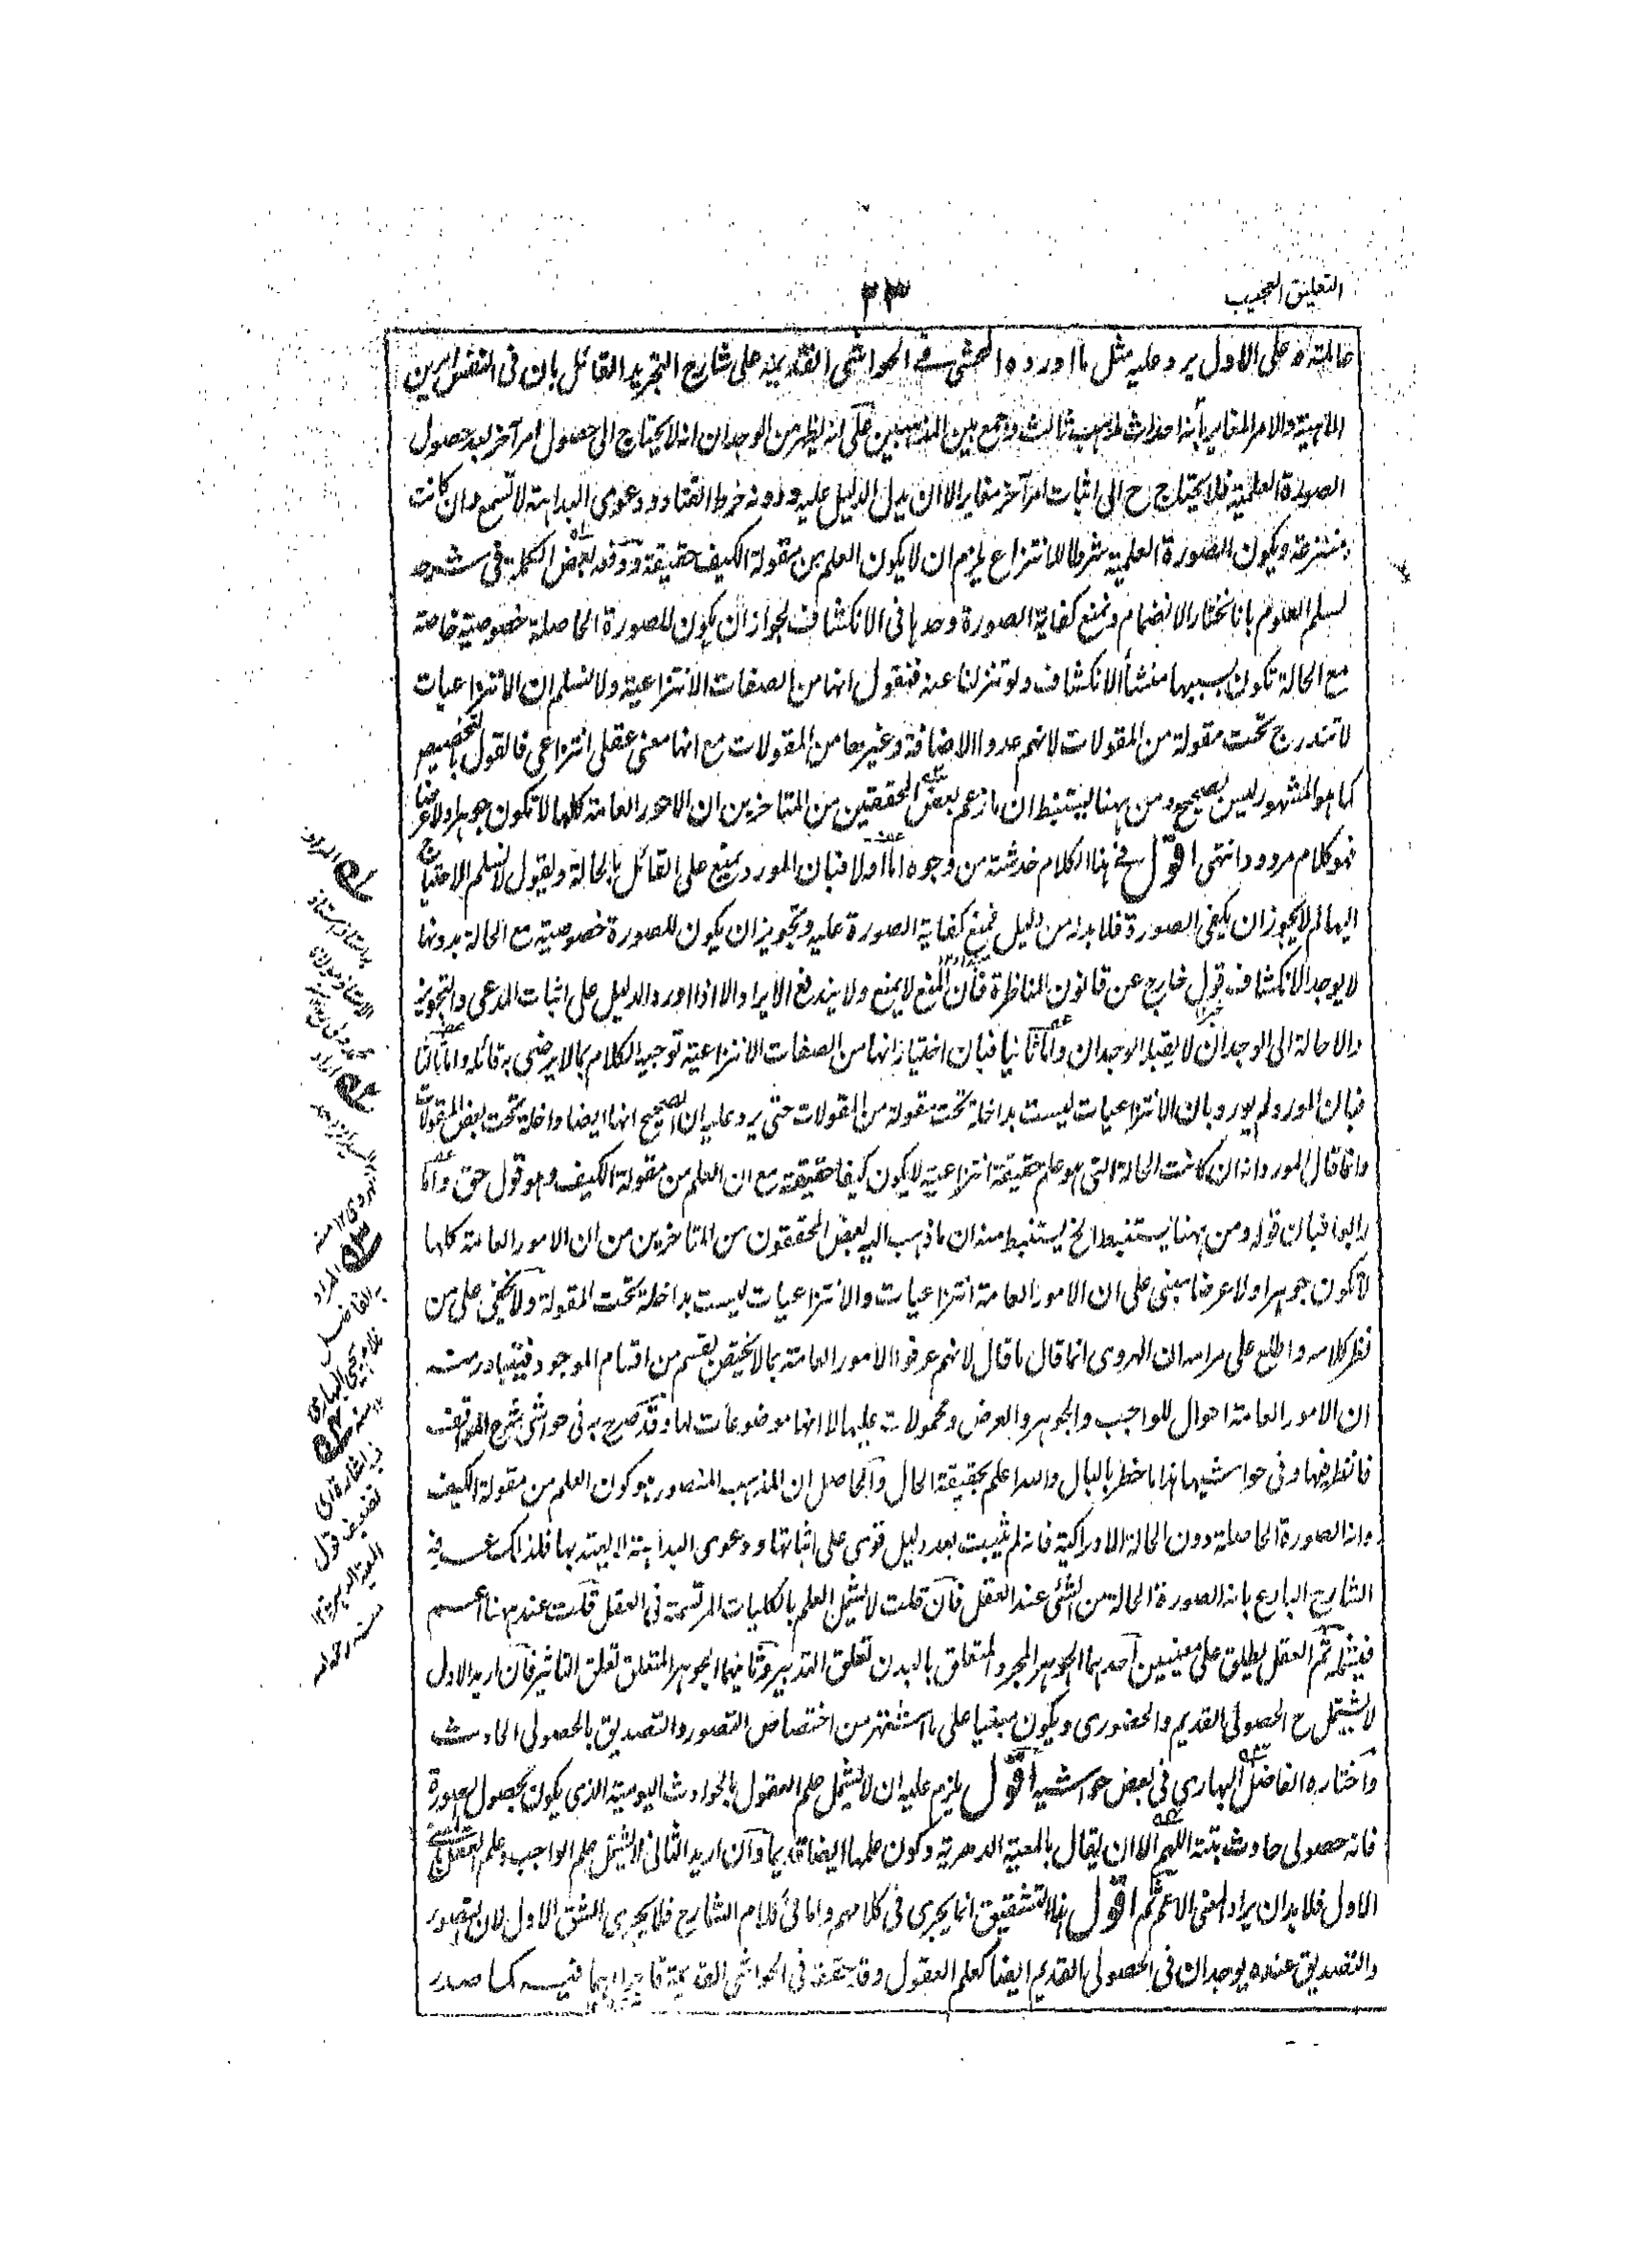 التعليق العجيب
٢٣
حالية فعلى الاول يرد عليه مثل ما اورده المحشى فى الحواشى القديمة على شارح التجريد القائل بان فى النفس امرين
الماهية والامر المغاير بأنه احداث مذهب ثالث وجمع بين المذهبين على انه يظهر من الوجدان انه لا يحتاج الى حصول امر آخر بعد حصول
الصورة العلمية فلا يحتاج ح الى اثبات امر آخر مغاير الا ان يدل الدليل عليه ودونه خرط القتاد ودعوى البداهة لا تسمع وان كانت
منتزعة ويكون الصورة العلمية شرطا للانتزاع يلزم ان لا يكون العلم من مقولة الكيف حقيقة ودفعه بعض الكملة فى شرحه
لسلم العلوم بانا نختار الانضمام ونمنع كفاية الصورة وحدها فى الانكشاف لجواز ان يكون للصورة الحاصلة خصوصية خاصة
مع الحالة تكون بسببها منشأ الانكشاف ولو تنزلنا عنه فنقول انها من الصفات الانتزاعية ولا نسلم ان الانتزاعيات
لا تندرج تحت مقولة من المقولات لانهم عدوا الاضافة وغيرها من المقولات مع انها معنى عقلى انتزاعى فالقول بالتخصيص
كما هو المشهور ليس بصحيح ومن ههنا يستنبط ان ما زعم بعض المحققين من المتاخرين ان الامور العامة كلها لا تكون جوهرا ولا عرضا
فهو كلام مردود انتهى اقول فى هذا الكلام خدشة من وجوه اما اولا فبان المورد يمنع على القائل بالحالة ويقول لا نسلم الاحتياج
اليها لم لا يجوز ان يكفى الصورة فلا بد له من دليل فمنع كفاية الصورة عليه وتجويز ان يكون للصورة خصوصية مع الحالة بدونها
لا يوجد الانكشاف قول خارج عن قانون المناظرة فان المنع لا يمنع ولا يندفع الايراد الا اذا اورد الدليل على اثبات المدعى والتجويز
والاحالة الى الوجدان لا يقبله الوجدان واما ثانيا فبان اختيار انها من الصفات الانتزاعية توجيه الكلام بما لا يرضى به قائله واما ثالثا
فبان المورد لم يورد بان الانتزاعيات ليست بداخلة تحت مقولة من المقولات حتى يرد عليه ان الصحيح انها ايضا داخلة تحت بعض المقولات
وانما قال المورد انه ان كانت الحالة التى هو علم حقيقة انتزاعية لا يكون كيفا حقيقة مع ان العلم من مقولة الكيف وهو قول حق واما
رابعا فبان قوله ومن ههنا يستنبط الخ يستنبط منه ان ما ذهب اليه بعض المحققون من المتاخرين من ان الامور العامة كلها
لا تكون جوهرا ولا عرضا مبنى على ان الامور العامة انتزاعيات والانتزاعيات ليست بداخلة تحت المقولة ولا يخفى على من
نظر كلامه واطلع على مرامه ان الهروى انما قال ما قال لانهم عرفوا الامور العامة بما لا يختص بقسم من اقسام الموجود فيتبادر منه
ان الامور العامة احوال للواجب والجوهر والعرض ومحمولات عليها لا انها موضوعات لها وقد صرح به فى حواشى شرح المواقف
فانظر فيها وفى حواشيها هذا ما خطر بالبال والله اعلم بحقيقة الحال والحاصل ان المذهب المنصور هو كون العلم من مقولة الكيف
وانه الصورة الحاصلة دون الحالة الادراكية فانه لم يثبت بعد دليل قوى على اثباتها ودعوى البداهة لا يعتد بها فلذلك عرفه
الشارح البارع بانه الصورة الحالة من الشئ عند العقل فان قلت لا يشمل العلم بالكليات المرتسمة فى العقل قلت عند ههنا اعم
فيشمله ثم العقل يطلق على معنيين احدهما الجوهر المجرد المتعلق بالبدن تعلق التدبير وثانيهما الجوهر المتعلق تعلق التاثير فان اريد الاول
لا يشتمل ح الحصولى القديم والحضورى ويكون مبنيا على ما اشتهر من اختصاص التصور والتصديق بالحصولى الحادث
واختاره الفاضل البهارى فى بعض حواشيه اقول يلزم عليه ان لا يشمل علم العقول بالحوادث اليومية الذى يكون بحصول الصورة
فانه حصولى حادث بتة اللهم الا ان يقال بالمعية الدهرية وكون علمها ايضا قديما وان اريد الثانى لا يشمل علم الواجب وعلم العقل
الاول فلا بد ان يراد المعنى الاعم ثم اقول هذا التشقيق انما يجرى فى كلامهم واما فى كلام الشارح فلا يجرى الشق الاول لان التصور
والتصديق عنده يوجدان فى الحصولى القديم ايضا كعلم العقول وقد حققه فى الحواشى القديمة فاجراءهما فيه كما صدر
المراد
به استاذ استاذ
الاستاذ مولوى
المراد
الهروى ١٢ منه
المراد
به الفاضل
غلام يحيى البهارى
١٢ منه
فيه اشارة الى
تضعيف قول
المعية الدهرية ١٢
منه رحمه الله